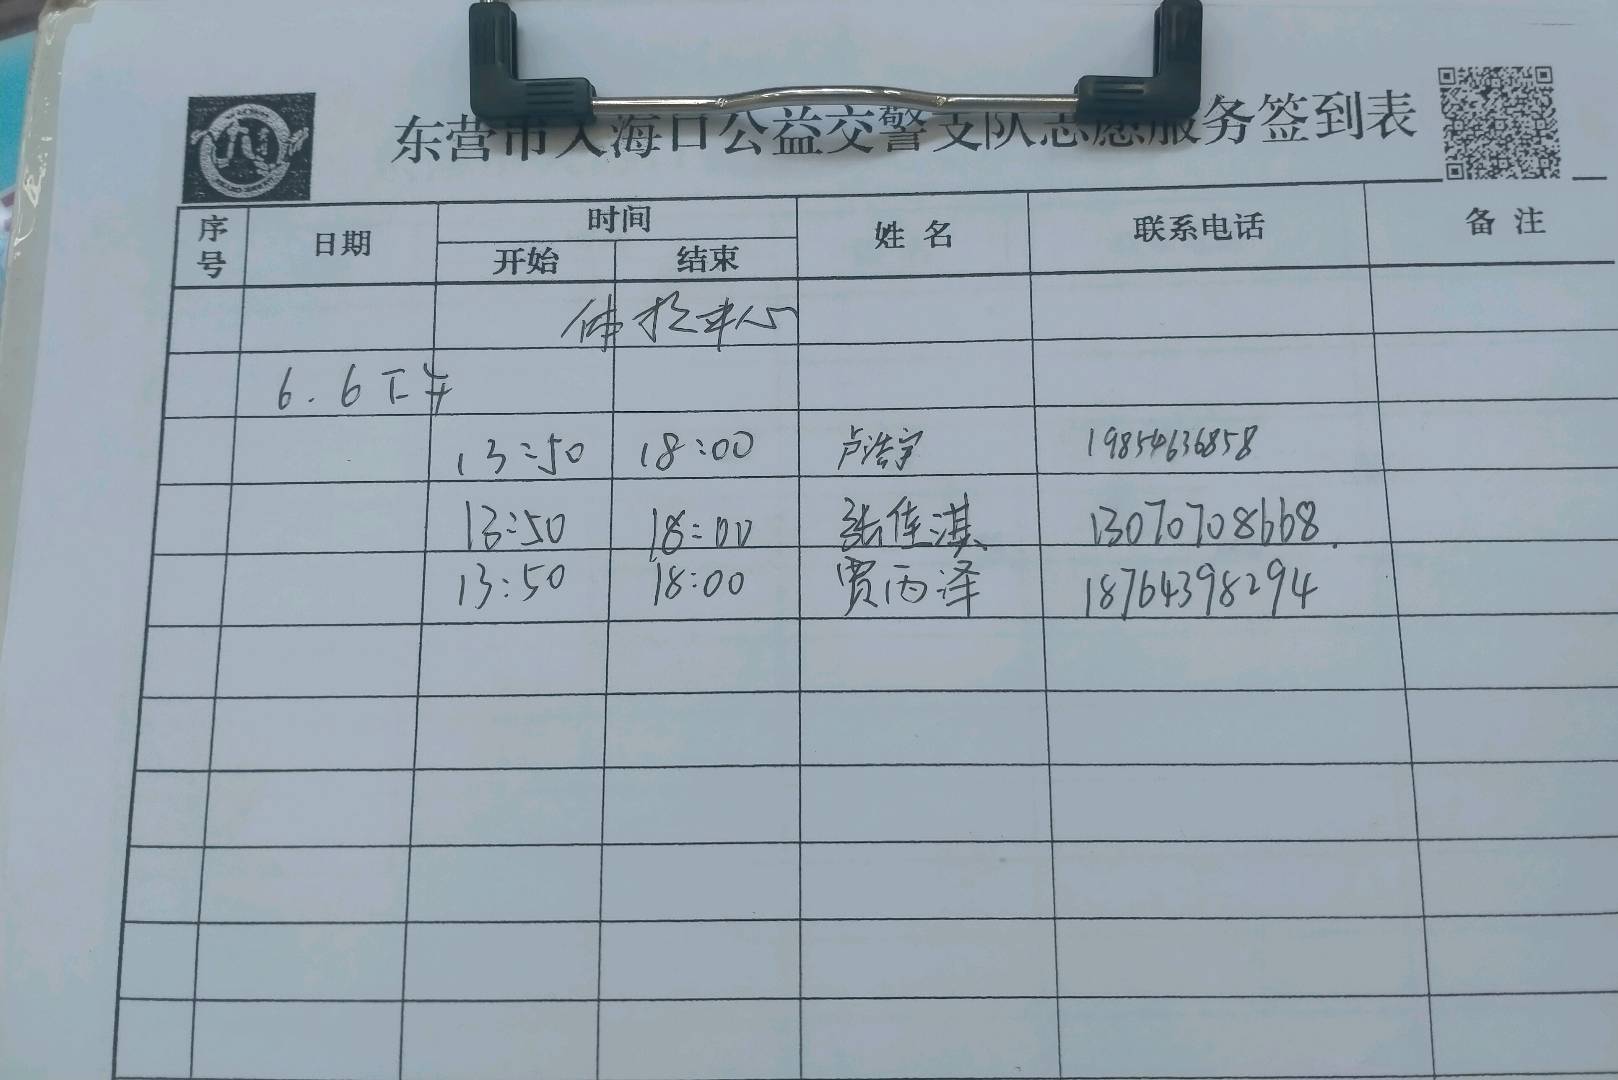 东营市入海口公益交警支队志愿服务签到表
序号 日期 时间 姓名 联系电话 备注
开始 结束
体检中心
6.6下午
13:50 18:00 卢浩宇 19854636858
13:50 18:00 张佳淇 13070708668
13:50 18:00 贾丙泽 18764398294